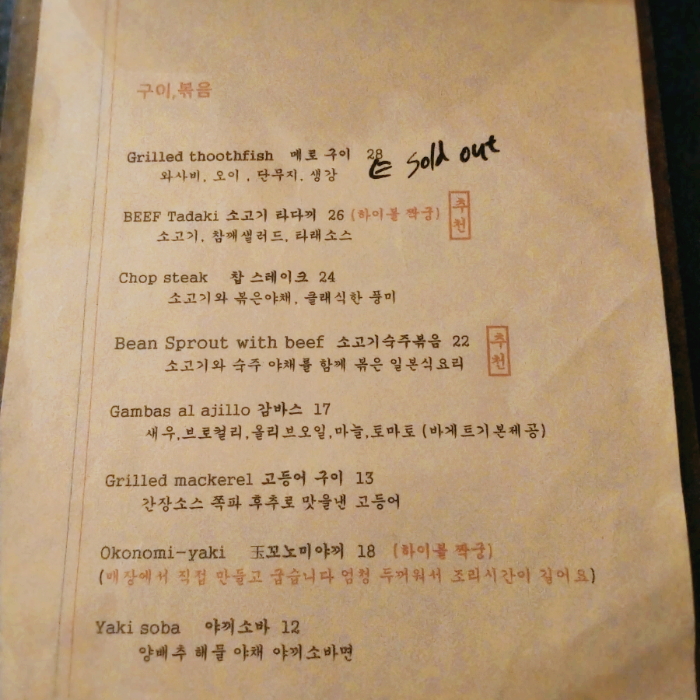 구이,볶음
Grilled thoothfish 메로 구이 28 sold out
와사비, 오이, 단무지, 생강
BEEF Tadaki 소고기 타다끼 26 (하이볼 짝궁) 추천
소고기, 참깨샐러드, 타래소스
Chop steak 찹 스테이크 24
소고기와 볶은야채, 클래식한 풍미
Bean Sprout with beef 소고기숙주볶음 22 추천
소고기와 숙주 야채를 함께 볶은 일본식요리
Gambas al ajillo 감바스 17
새우,브로컬리,올리브오일,마늘,토마토 (바게트기본제공)
Grilled mackerel 고등어 구이 13
간장소스 쪽파 후추로 맛을낸 고등어
Okonomi-yaki 玉꼬노미야끼 18 (하이볼 짝궁)
(매장에서 직접 만들고 굽습니다 엄청 두꺼워서 조리시간이 길어요)
Yaki soba 야끼소바 12
양배추 해물 야채 야끼소바면